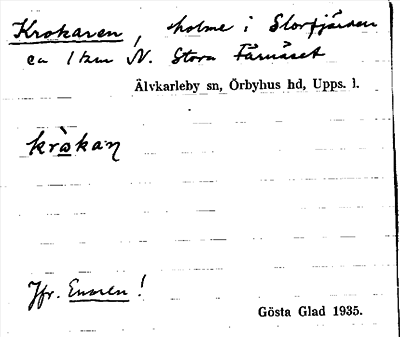 Krokaren, holme i Storfjärden
ca 1 km N. Stora Fårnäset
Älvkarleby sn, Örbyhus hd, Upps. l.
krə̀skaɳ
Jfr. Enaren!
Gösta Glad 1935.